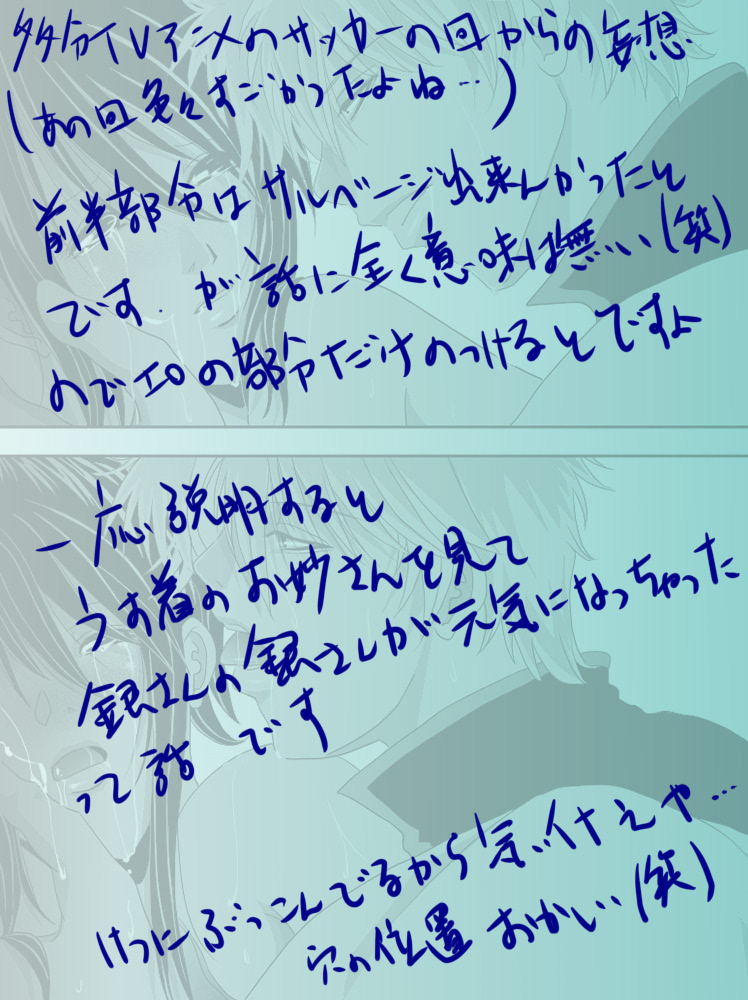 多分TVアニメのサッカーの回からの妄想
(あの回色々すごかったよね…)
前半部分はサルベージ出来んかったと
です.が話に全く意味は無い(笑)
のでエロの部分だけのっけるとですよ
一応説明すると
うす着のお妙さんを見て
銀さんの銀さんが元気になっちゃった
って話です
けつにぶっこんでるから気ぃ付えや…
穴の位置おかしい(笑)